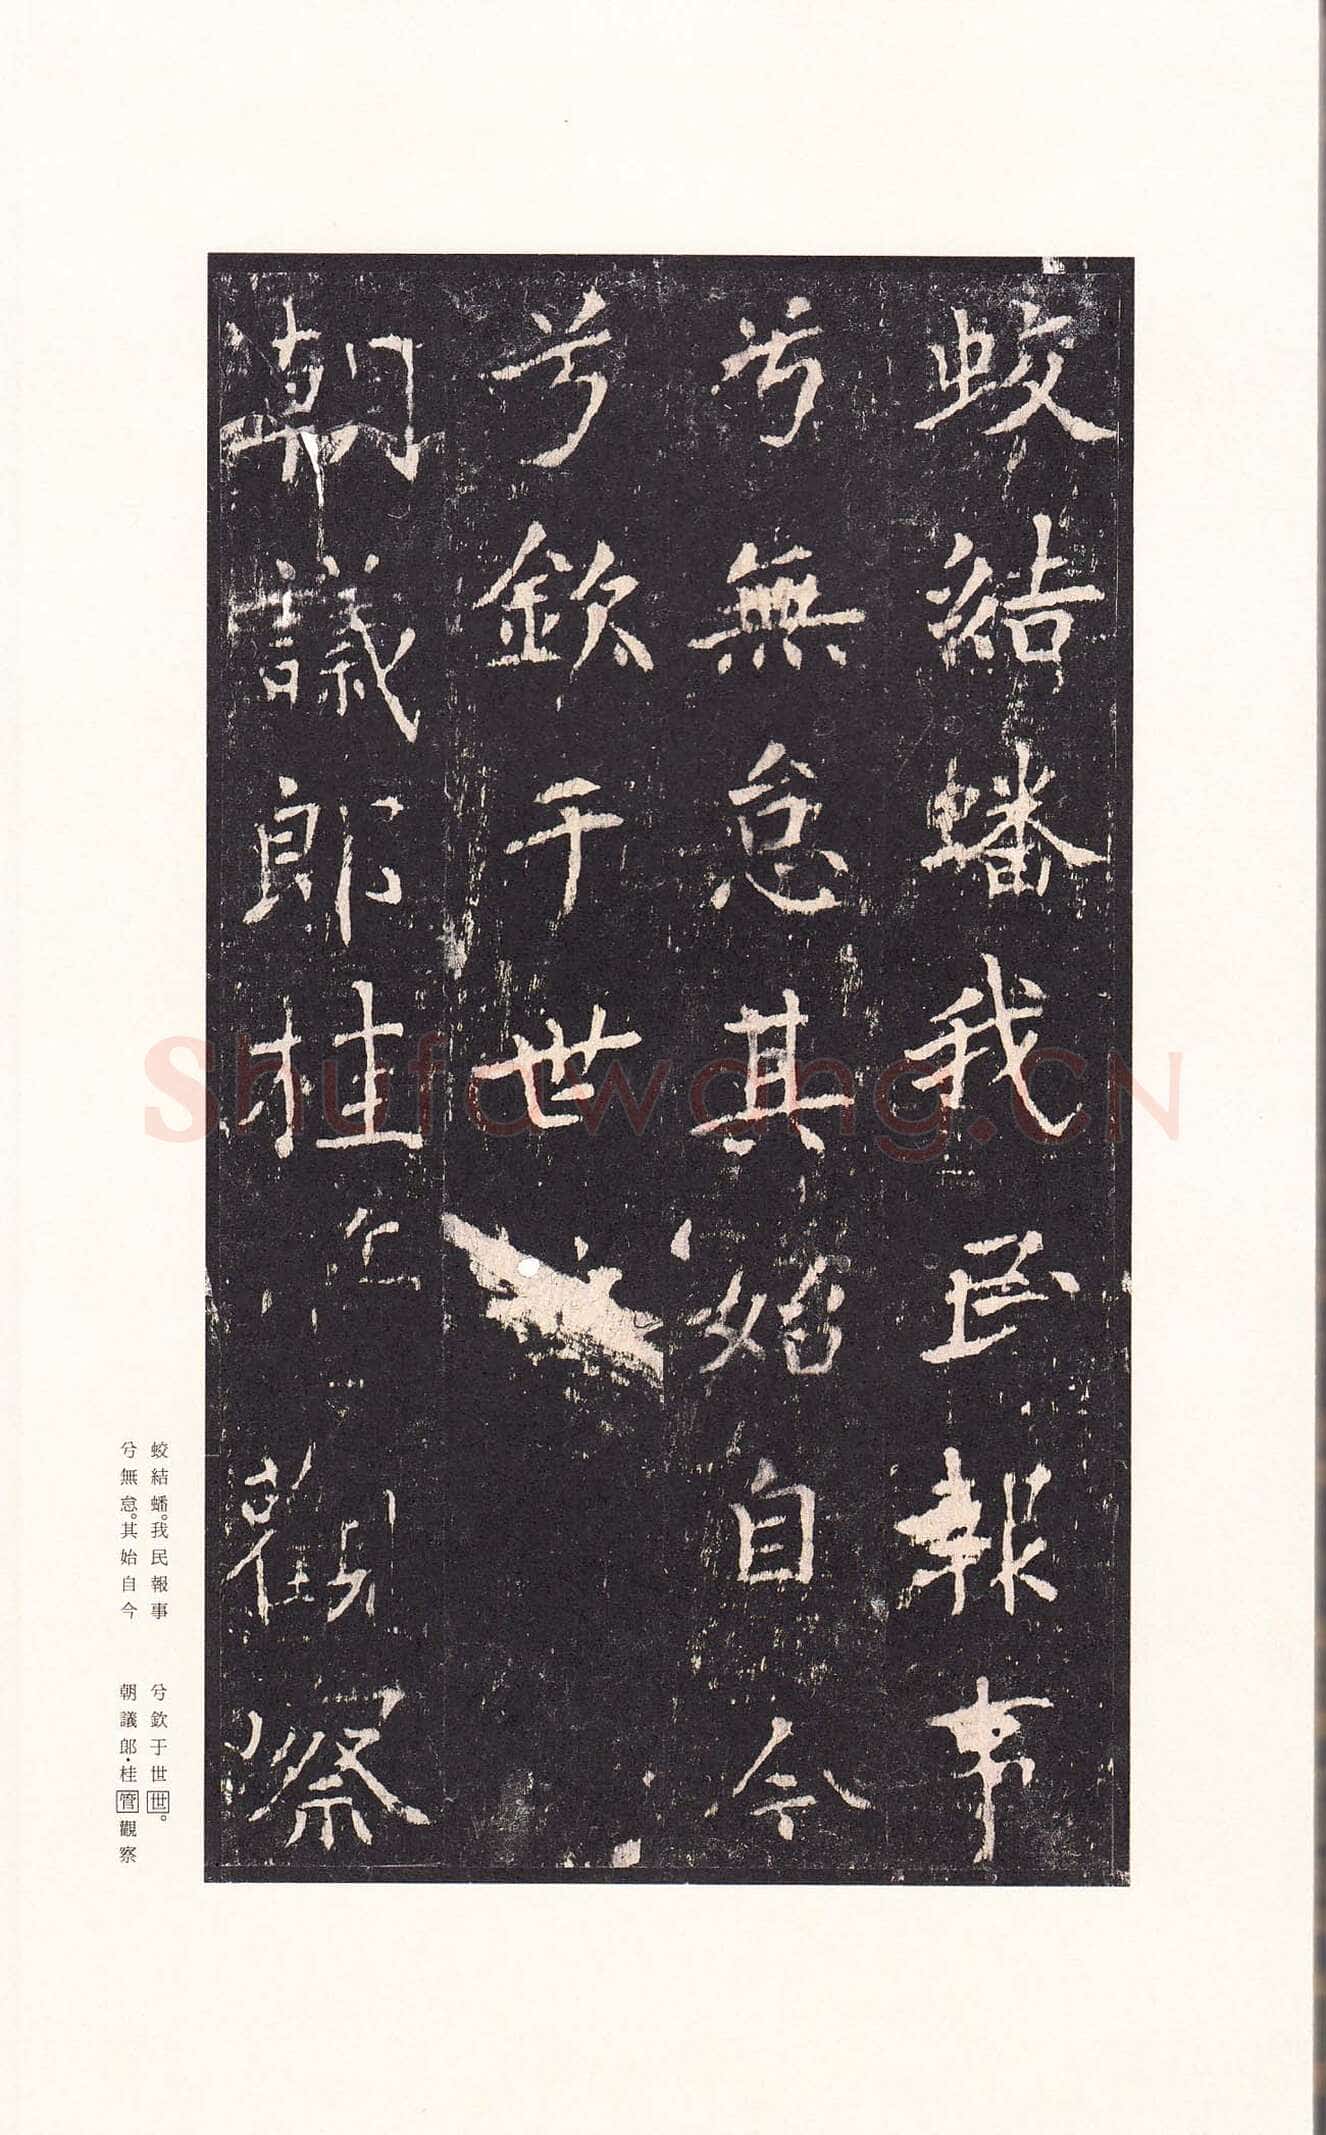 蛟結蟠我民報事
兮無怠其始自今
兮欽于世
朝議郎桂觀察
蛟結蟠。我民報事
兮無怠。其始自今
兮欽于世世。
朝議郎・桂管觀察
Shufawang.CN